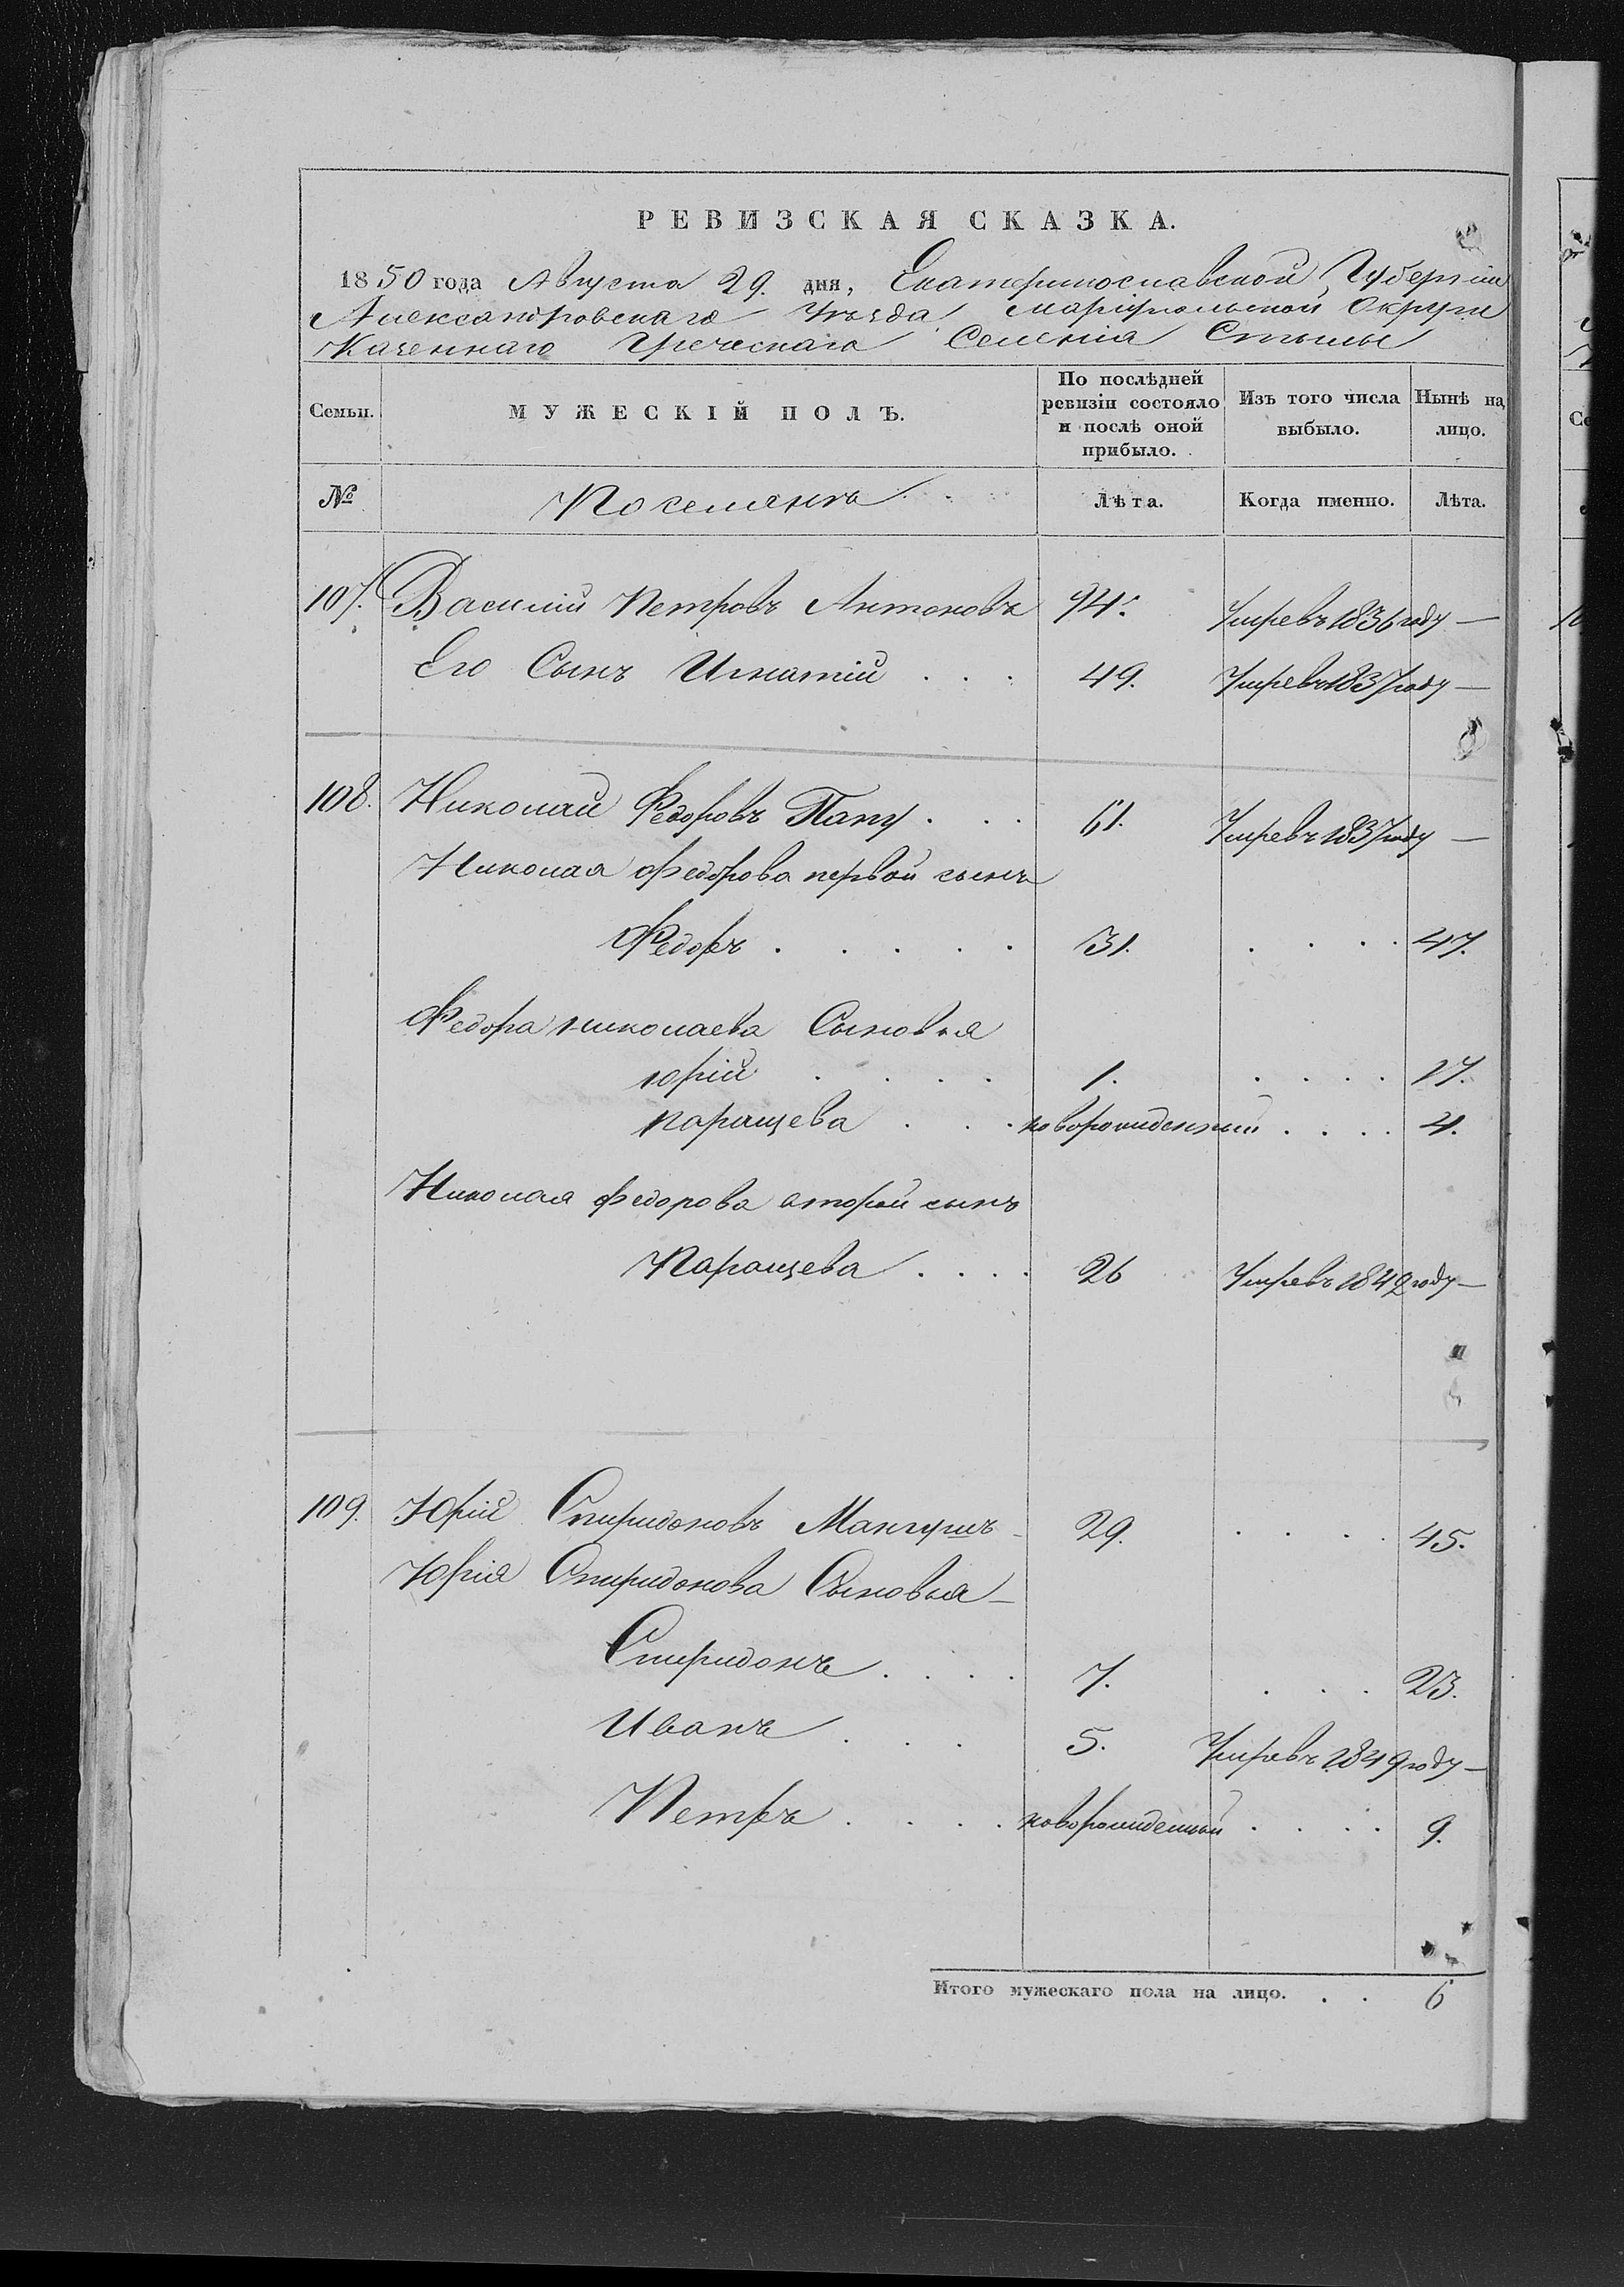 РЕВИЗСКАЯ СКАЗКА.
1850 года Августа 29. дня, Екатеринославской Губерніи
Александровскаго Уѣзда Маріупольской Округи
Казеннаго Греческаго Селенія Стылы
Семьи. МУЖЕСКІЙ ПОЛЪ. По послѣдней ревизіи состояло и послѣ оной прибыло. Изъ того числа выбыло. Нынѣ на лицо.
№ Поселянъ Лѣта. Когда именно. Лѣта.
107. Василій Петровъ Антоновъ 94. Умре въ 1836 году —
Его Сынъ Игнатій . . . 49. Умре въ 1837 году —
108. Николай Федоровъ Папу . . . 61. Умре въ 1837 году —
Николая Федорова первой сынъ
Федоръ . . . . . 31. . . . . 47.
Федора Николаева Сыновья
Юрій . . . . 1. . . . . 17.
Паращева . . . новорожденный . . . . 4.
Николая Федорова второй сынъ
Паращева . . . . 26 Умре въ 1842 году —
109. Юрій Спиридоновъ Мангушъ 29. . . . . 45.
Юрія Спиридонова Сыновья —
Спиридонъ . . . . 7. . . . 23.
Иванъ . . . 5. Умре въ 1849 году —
Петръ . . . . новорожденный . . . . 9.
Итого мужескаго пола на лицо. . . 6